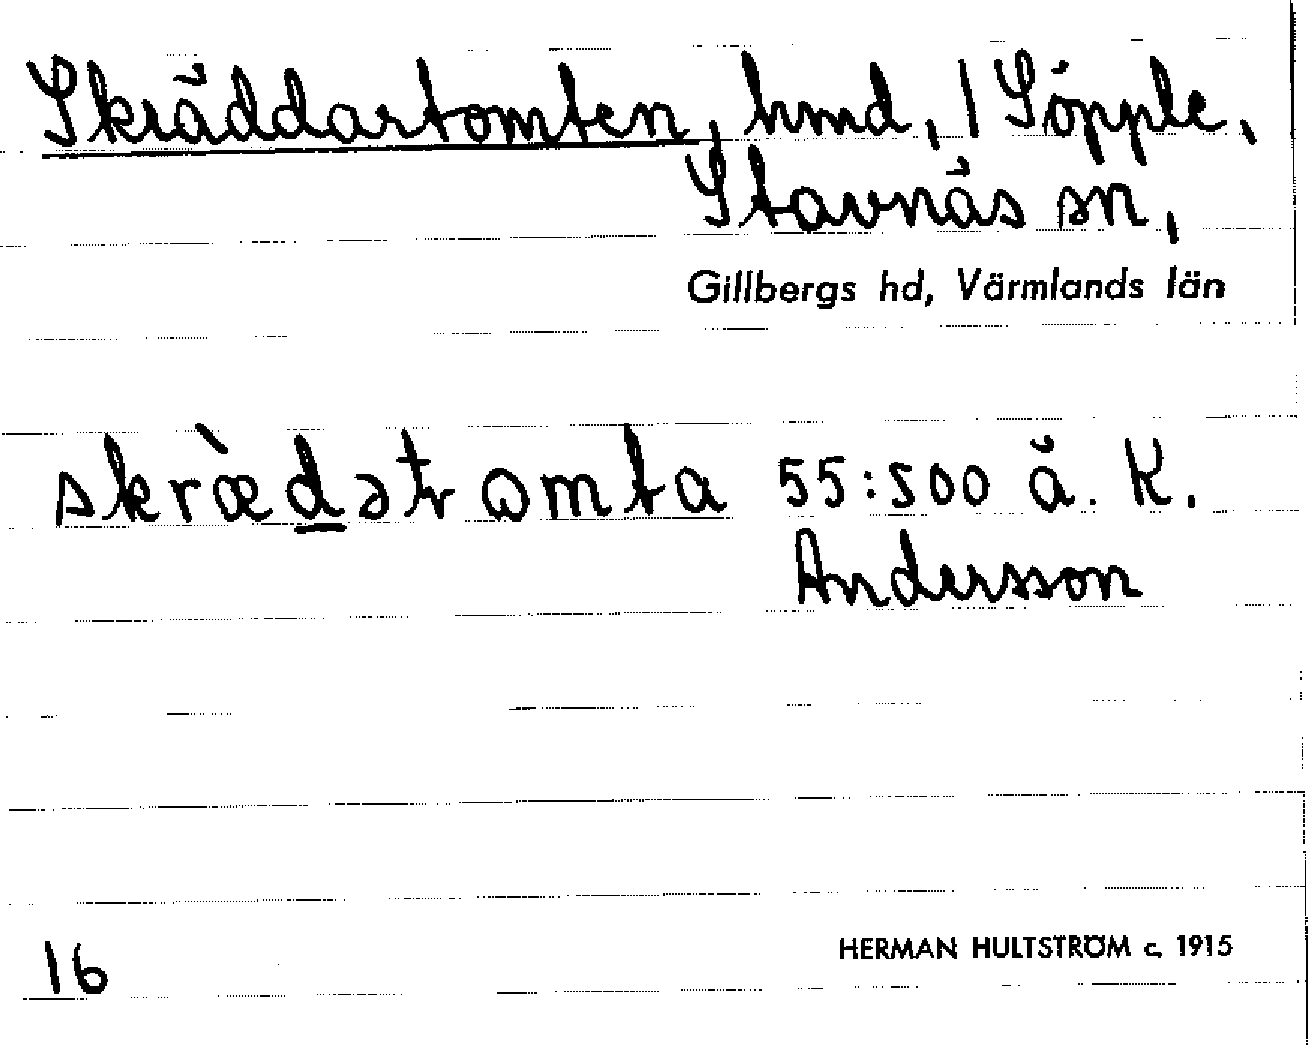 Skräddartomten, hmd, 1 Söpple,
Stavnäs sn,
Gillbergs hd, Värmlands län
skræ̀d̲ətr ɷmta 55:500 ä. K.
Andersson
16
HERMAN HULTSTRÖM c. 1915